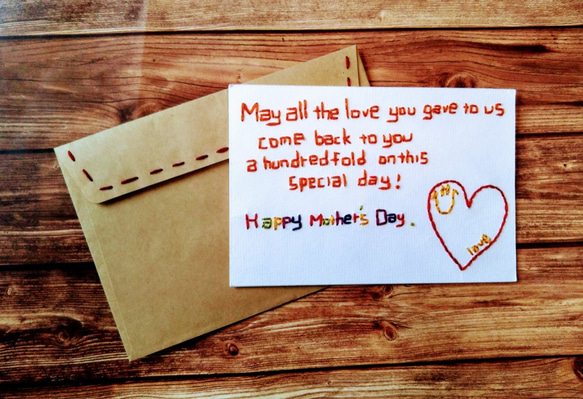 May all the love you gave to us
come back to you
a hundredfold on this
special day!
Happy Mother's Day.
love